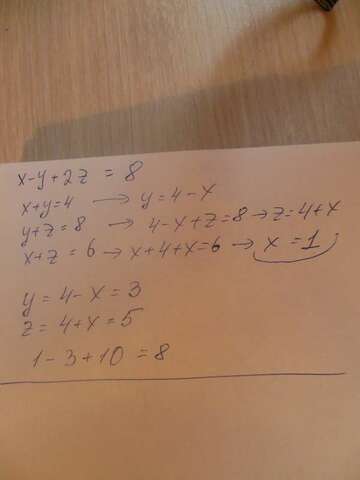 x-y+2z = 8
x+y=4 → y=4-x
y+z=8 → 4-x+z=8 → z=4+x
x+z=6 → x+4+x=6 → x=1
y=4-x=3
z=4+x=5
1-3+10=8